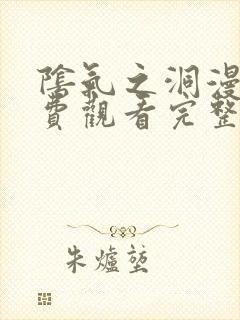 陰氣之洞漫
費觀看完整
朱爐塹